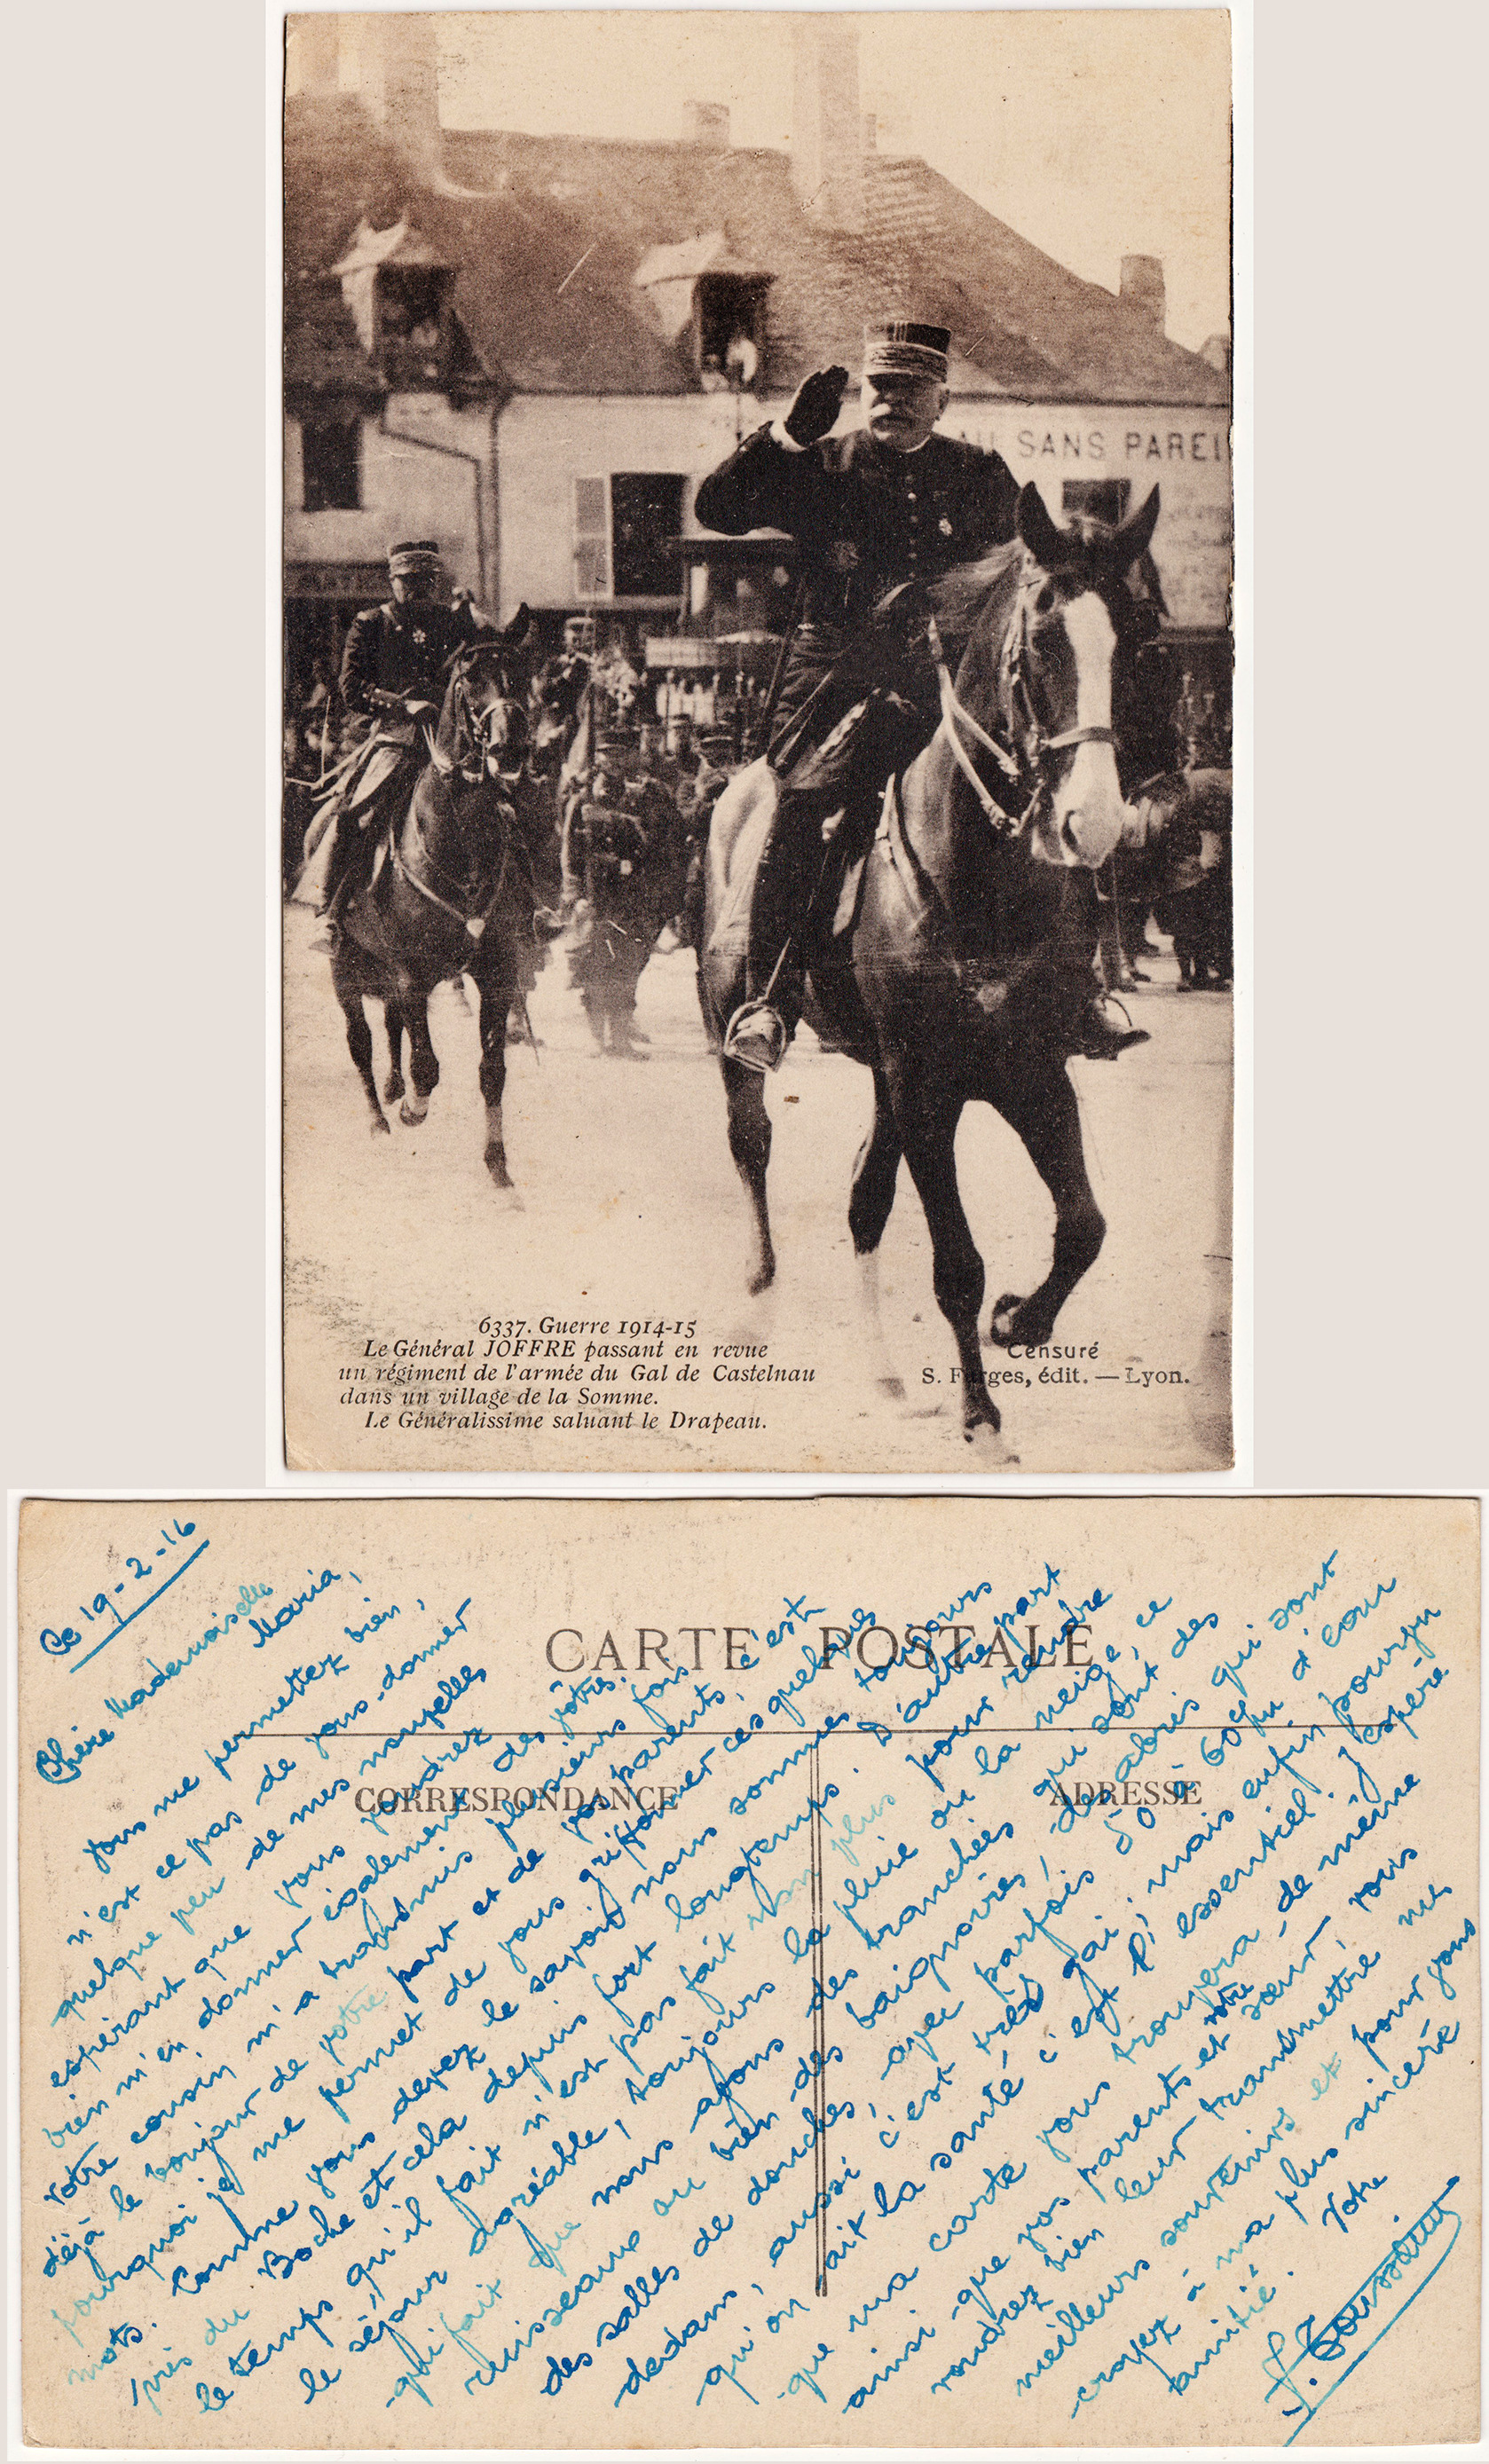 AU SANS PAREI
6337. Guerre 1914-15
Le Général JOFFRE passant en revue
un régiment de l'armée du Gal de Castelnau
dans un village de la Somme.
Le Généralissime saluant le Drapeau.
Censuré
S. Farges, édit. — Lyon.
CARTE POSTALE
CORRESPONDANCE
ADRESSE
Ce 19-2-16
Chère Mademoiselle
Maria,
Vous me permettez bien,
n'est ce pas de vous donner
quelque peu de mes nouvelles
espérant que vous voudrez
bien m'en donner également des vôtres.
Votre cousin m'a transmis plusieurs fois
déjà le bonjour de votre part et de vos parents, c'est
pourquoi je me permet de vous griffonner ces quelques
mots. Comme vous devez le savoir nous sommes toujours
près du Boche et cela depuis fort longtemps. D'autre part
le temps qu'il fait n'est pas fait non plus pour rendre
le séjour agréable, toujours la pluie ou la neige, ce
qui fait que nous avons des tranchées qui sont des
ruisseaux ou bien des baignoires, des abris qui sont
des salles de douches, avec parfois 50 à 60 cm d'eau
dedans, aussi c'est très gai, mais enfin pourvu
qu'on ait la santé c'est l'essentiel. J'espère
que ma carte vous trouvera de même
ainsi que vos parents et votre sœur, vous
voudrez bien leur transmettre mes
meilleurs souvenirs et pour vous
croyez à ma plus sincère
amitié. Votre